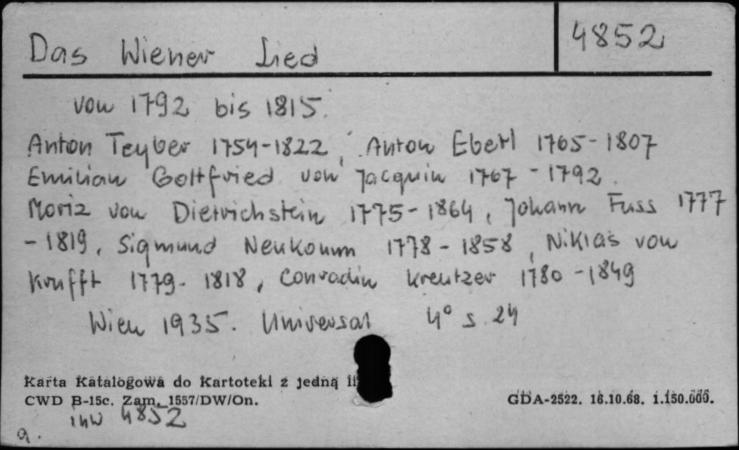 Das Wiener Lied 4852
von 1792 bis 1815.
Anton Teyber 1754-1822, Anton Eberl 1765-1807
Emilian Gottfried von Jacquin 1767-1792
Moriz von Dietrichstein 1775-1864, Johann Fuss 1777
-1819, Sigmund Neukomm 1778-1858, Niklas von
Krufft 1779-1818, Conradin Kreutzer 1780-1849
Wien 1935. Universal 4° s. 24
Karta Katalogowa do Kartoteki z jedną
CWD B-15c. Zam. 1557/DW/On. GDA-2522. 16.10.68. 1.150.000.
inw 4852